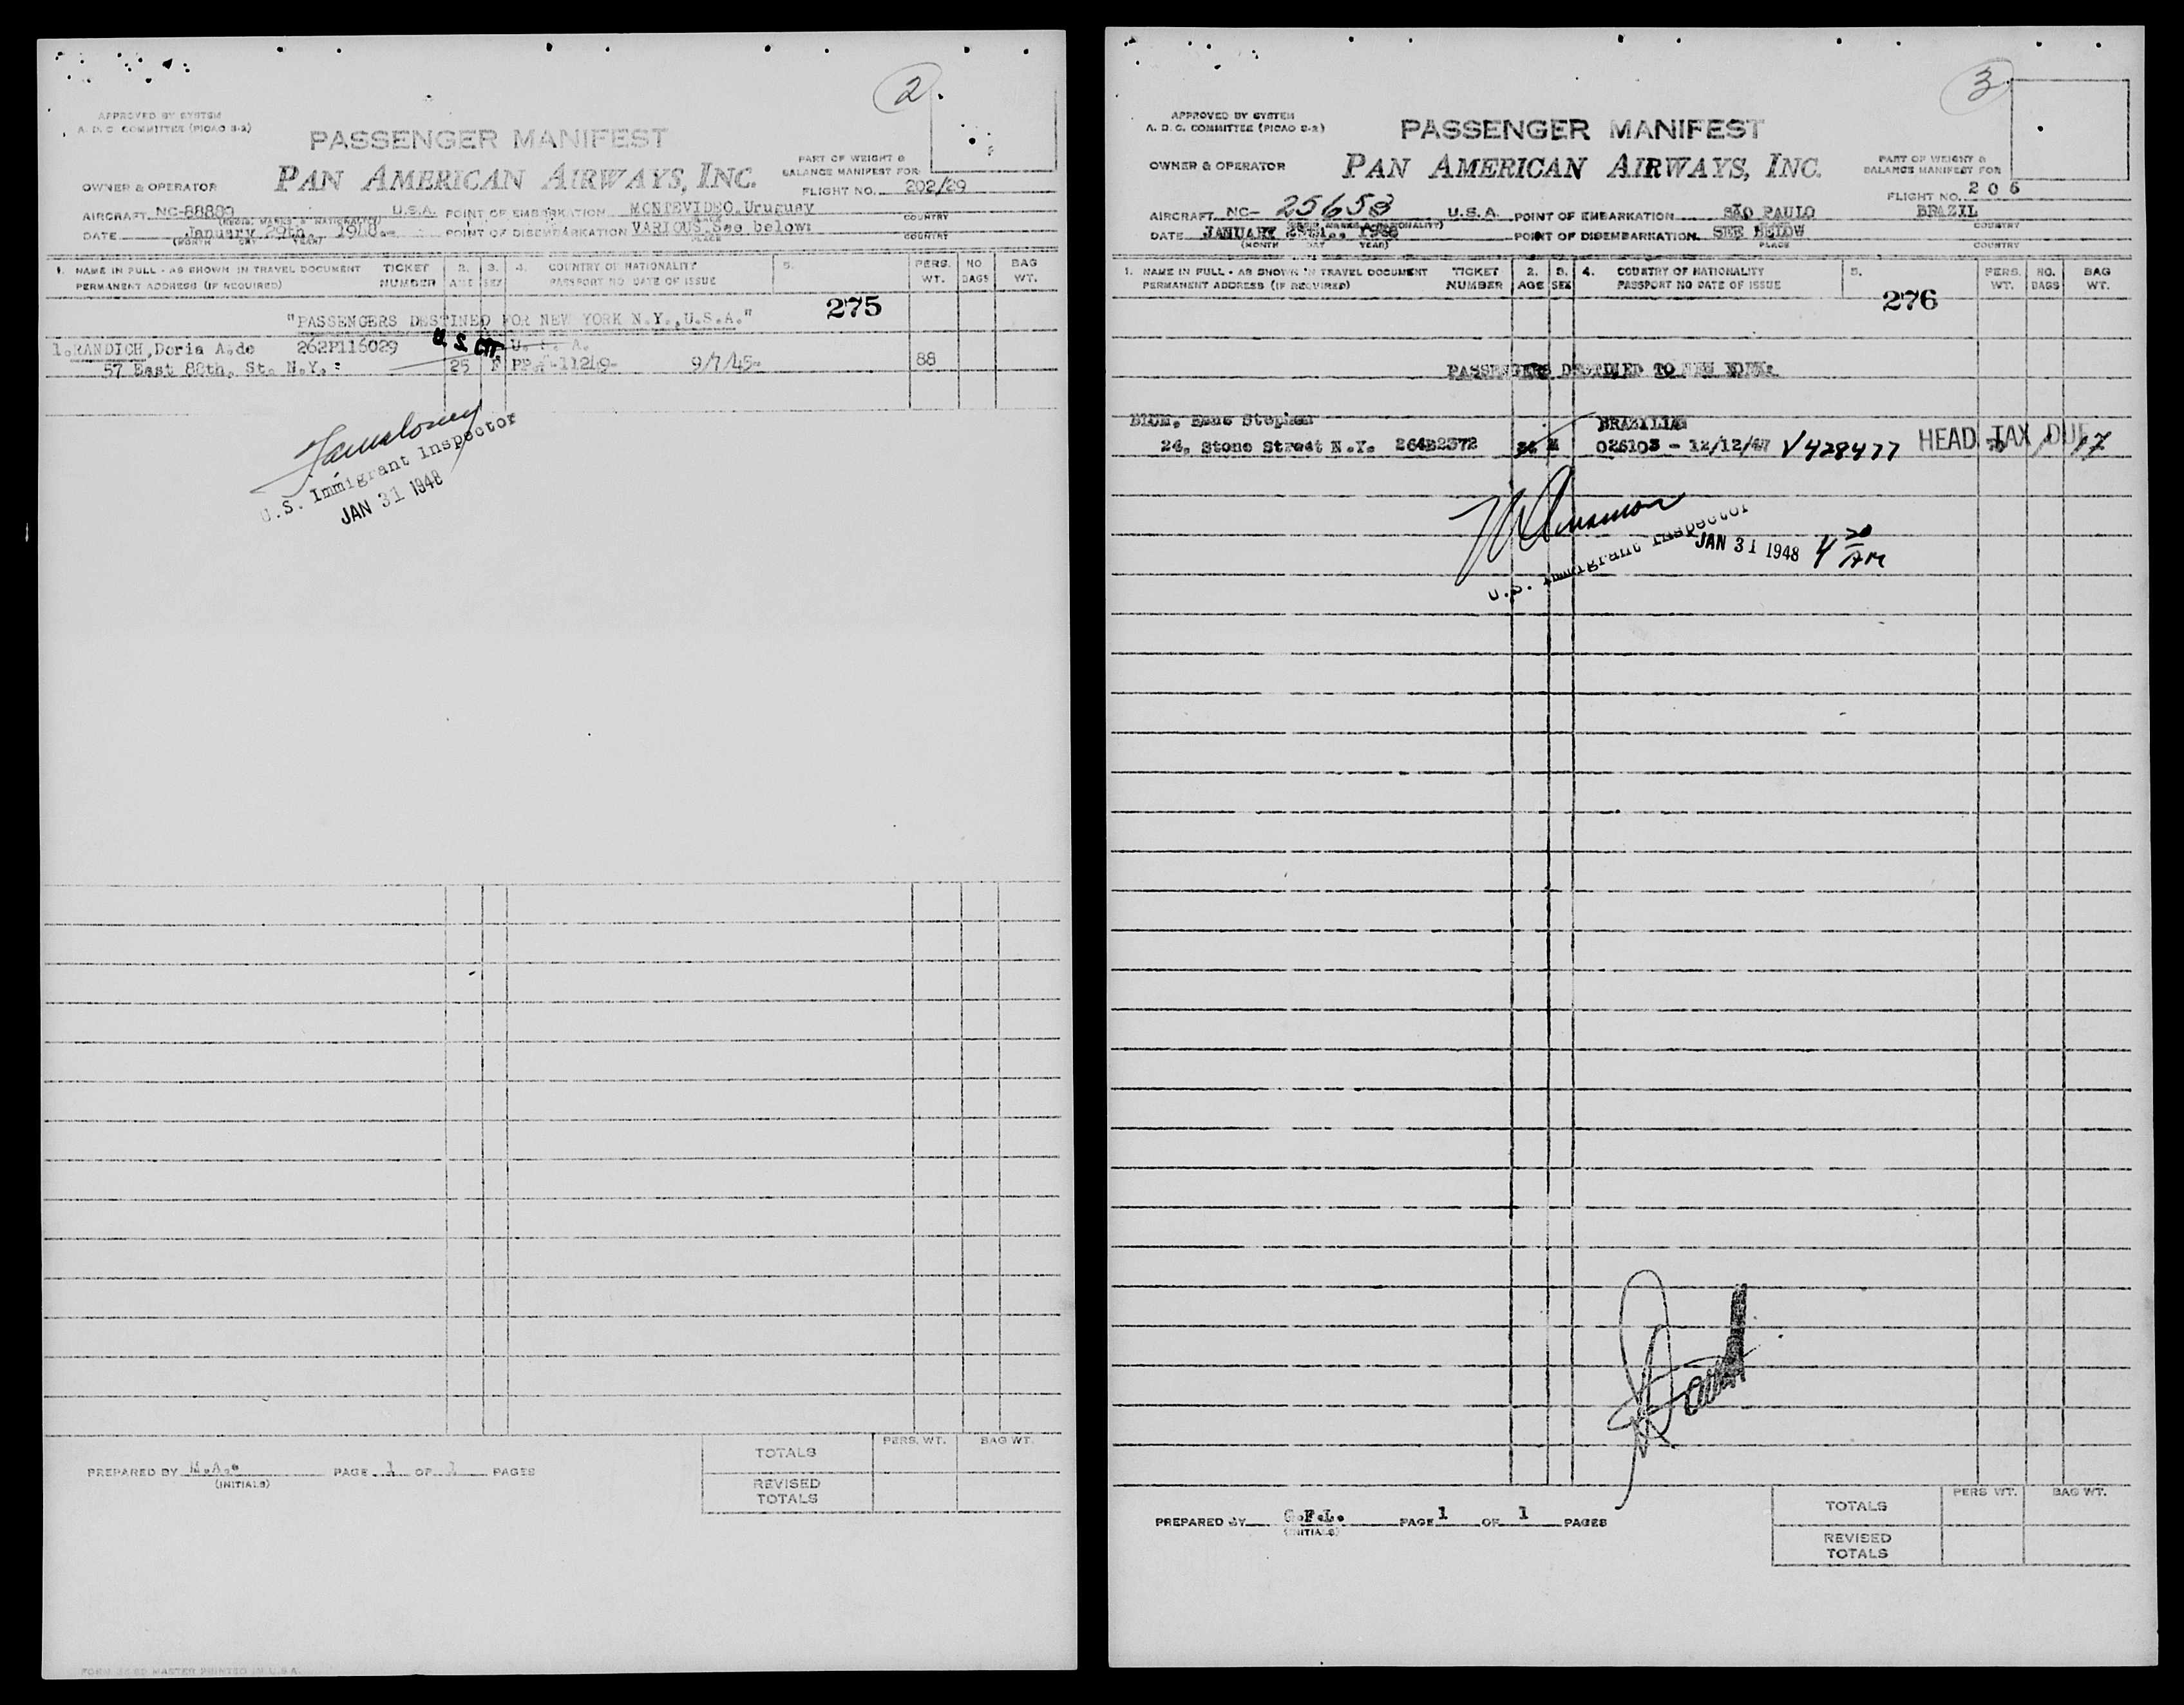 2
APPROVED BY SYSTEM
A. D. C. COMMITTEE (PICAO S-2)
PASSENGER MANIFEST
OWNER & OPERATOR
PAN AMERICAN AIRWAYS, INC.
PART OF WEIGHT &
BALANCE MANIFEST FOR
FLIGHT NO. 202/29
AIRCRAFT NC-88880 U.S.A. POINT OF EMBARKATION MONTEVIDEO.Uruguay
PLACE COUNTRY
DATE January 29th. 1948.- POINT OF DISEMBARKATION VARIOUS.See below:
(MONTH DAY YEAR) PLACE COUNTRY
1. NAME IN FULL - AS SHOWN IN TRAVEL DOCUMENT TICKET 2. 3. 4. COUNTRY OF NATIONALITY 5. PERS. NO BAG
PERMANENT ADDRESS (IF REQUIRED) NUMBER AGE SEX PASSPORT NO DATE OF ISSUE WT. BAGS WT.
275
"PASSENGERS DESTINED FOR NEW YORK N.Y.,U.S.A."
U. S. CIT.
1.RANDICH,Doria A.de 262P116029 U. S. A.
57 East 88th, St. N.Y.: 25 F PP.-11249- 9/7/45- 88
U.S. Immigrant Inspector
JAN 31 1948
TOTALS PERS. WT. BAG WT.
PREPARED BY M.A. PAGE 1 OF 1 PAGES
(INITIALS)
REVISED
TOTALS
MASTER PRINTED IN U.S.A.
3
APPROVED BY SYSTEM
A. D. C. COMMITTEE (PICAO S-2)
PASSENGER MANIFEST
OWNER & OPERATOR
PAN AMERICAN AIRWAYS, INC.
PART OF WEIGHT &
BALANCE MANIFEST FOR
FLIGHT NO. 206
AIRCRAFT NC- 25653 U.S.A. POINT OF EMBARKATION SÃO PAULO BRAZIL
COUNTRY
DATE JANUARY POINT OF DISEMBARKATION SEE BELOW
(MONTH DAY YEAR) PLACE COUNTRY
1. NAME IN FULL - AS SHOWN IN TRAVEL DOCUMENT TICKET 2. 3. 4. COUNTRY OF NATIONALITY 5. PERS. NO. BAG
PERMANENT ADDRESS (IF REQUIRED) NUMBER AGE SEX PASSPORT NO DATE OF ISSUE WT. BAGS WT.
276
PASSENGERS DESTINED TO NEW YORK:
Stephen BRAZILIAN
24, Stone Street N.Y. 264B2372 M 026103 - 12/12/47 V428477 HEAD TAX DUE 17
U.S. Immigrant Inspector
JAN 31 1948 4 30 AM
TOTALS PERS WT. BAG WT.
PREPARED BY G.F.L. PAGE 1 OF 1 PAGES
(INITIALS)
REVISED
TOTALS